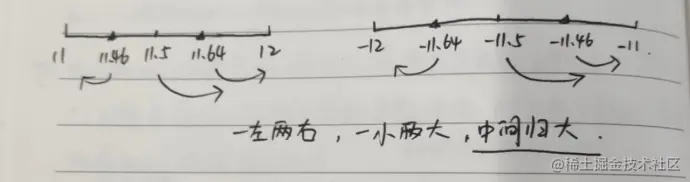 11 11.46 11.5 11.64 12 -12 -11.64 -11.5 -11.46 -11.
一左两右，一小两大，中间归大.
@稀土掘金技术社区